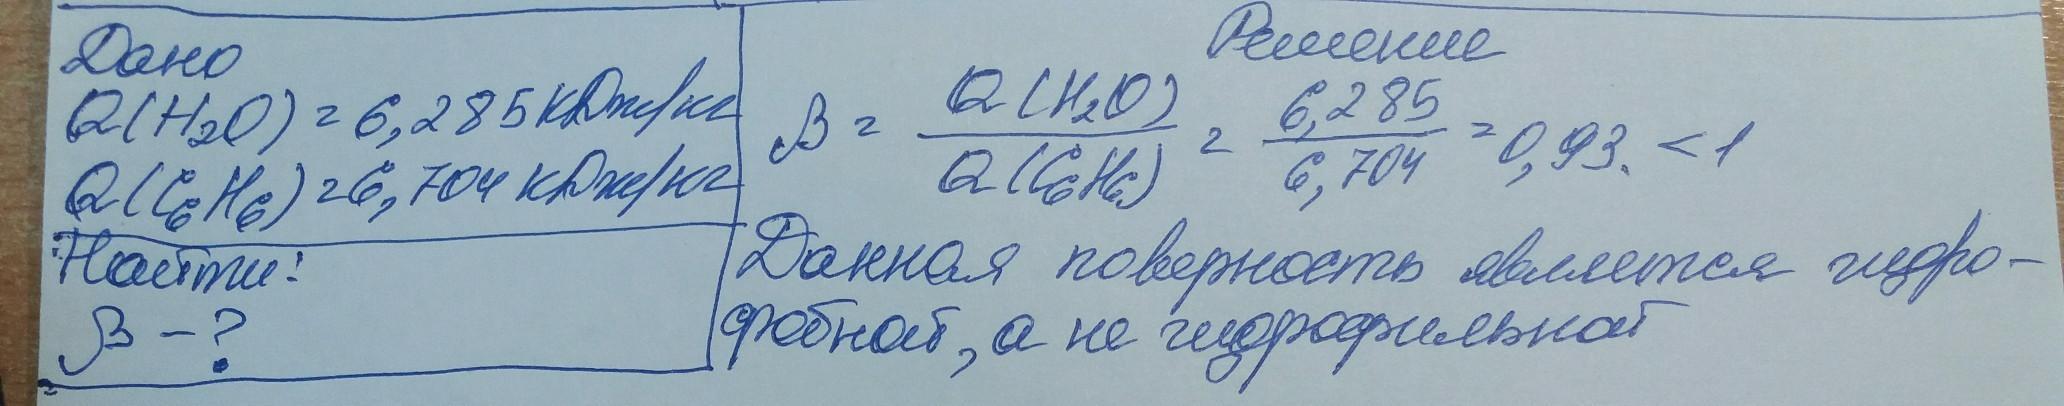 Дано
Q(H₂O) = 6,285 кДж/кг
Q(C₆H₆) = 6,704 кДж/кг
Найти:
β - ?
Решение
β = Q(H₂O) / Q(C₆H₆) = 6,285 / 6,704 = 0,93. < 1
Данная поверность является гидро-
фобной, а не гидрофильной